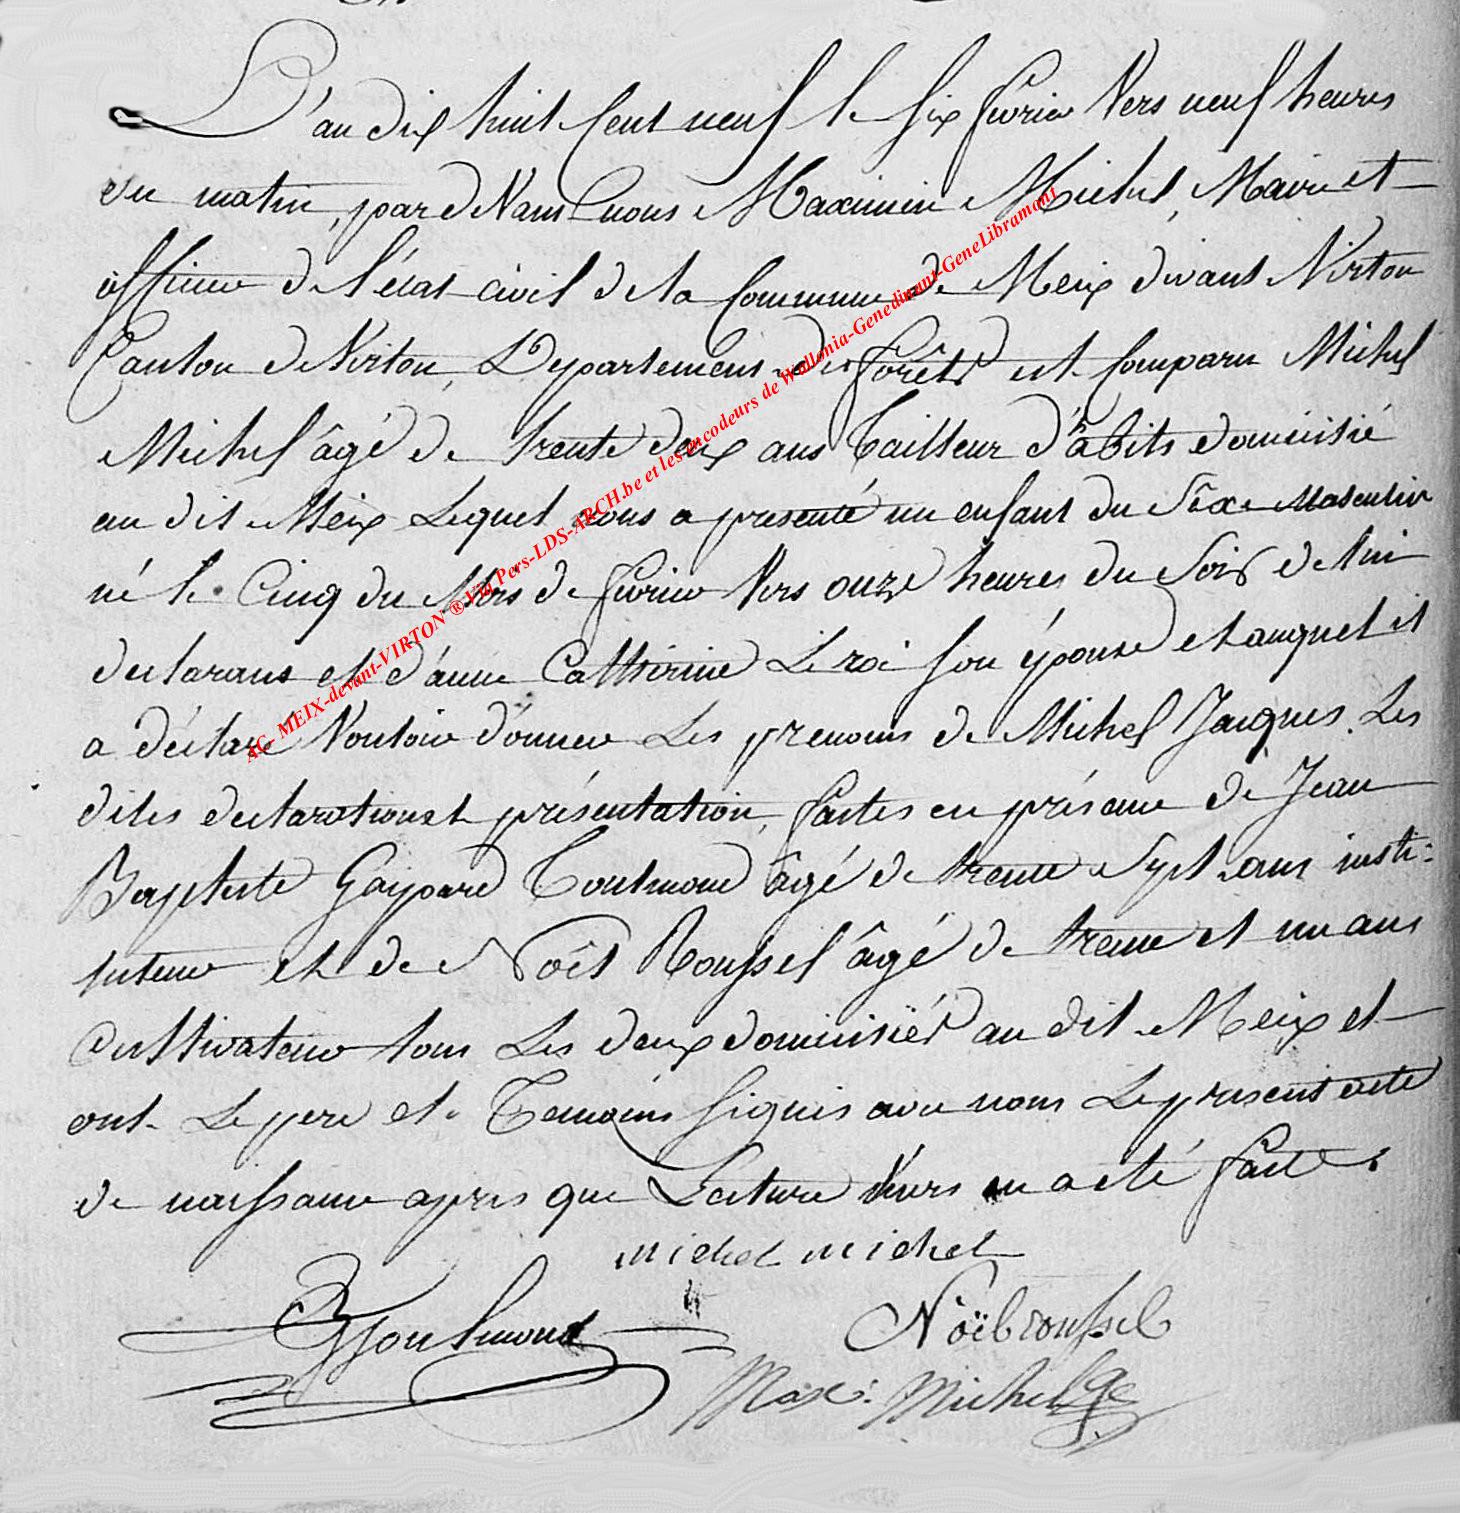 L'an dix huit Cent neuf le six fevrier Vers neuf heures
du matin, pardevant nous Maximin Michel, Maire et
officier de l'état civil de la Commune de Meix devant Virton
Canton de Virton, Département des forêts est Comparu Michel
Michel âgé de trente deux ans Tailleur d'abits domicilié
au dit Meix Lequel nous a presenté un enfant du Sexe Masculin
né le Cinq du Mois de fevrier Vers onze heures du Soir de lui
declarant et d'anne Catherine Leroi son épouse et auquel il
a déclaré Vouloir donner Les prenoms de Michel Jacques. Les
dites declaration et présentation, faites en présence de Jean
Baptiste Gaspard Toulmond âgé de trente Sept ans insti-
tuteur et de Noël Roussel âgé de trente et un ans
Cultivateur tous Les deux domiciliés au dit Meix et
ont Le pere et Temoins signés avec nous Le present acte
de naissance apres que Lecture leurs en a eté faite.
michel michel
Toulmond
Noël roussel
Max: Michel
AC- MEIX-devant-VIRTON ® Via Pers-LDS-ARCH.be et les encodeurs de Wallonia-Genedinant-GeneLibramont